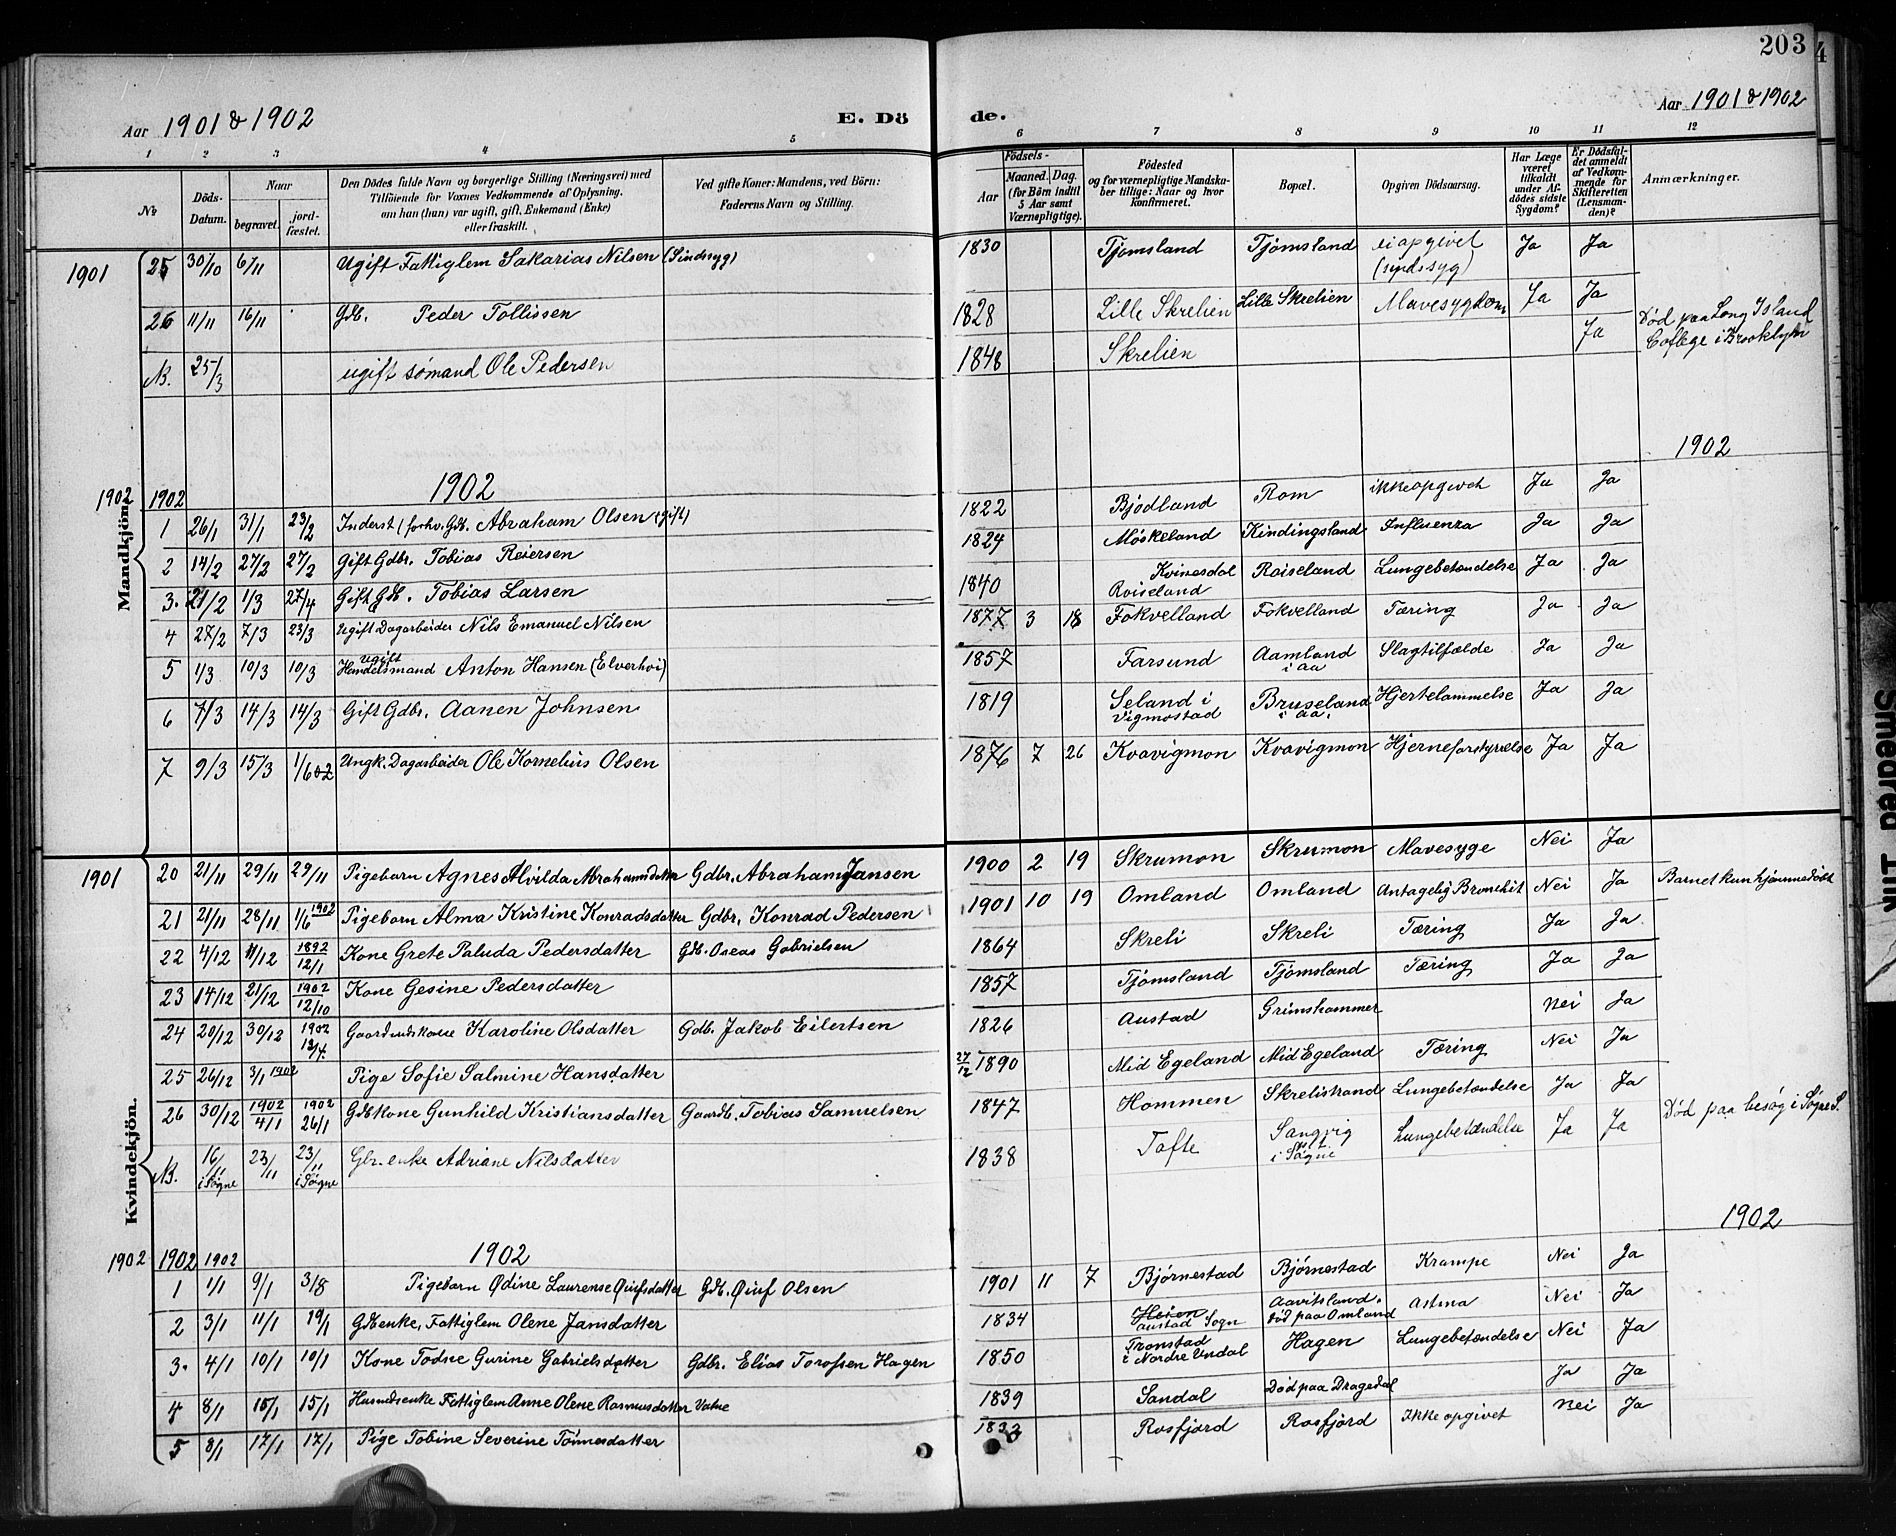 203
4
Aar 1901 & 1902
E. Dö
de.
Aar 1901 & 1902
1 2 3 4 5 6 7 8 9 10 11 12
No
Döds-Datum.
Naar
begravet.
jord-fæstet.
Den Dödes fulde Navn og borgerlige Stilling (Næringsvei) med
Tilföiende for Voxnes Vedkommende af Oplysning,
om han (hun) var ugift, gift, Enkemand (Enke)
eller fraskilt.
Ved gifte Koner: Mandens, ved Börn:
Faderens Navn og Stilling.
Födsels-
Aar
Maaned. Dag.
(for Börn indtil
5 Aar samt
Værnepligtige).
Födested
og for værnepligtige Mandska-
ber tillige: Naar og hvor
konfirmeret.
Bopæl.
Opgiven Dödsaarsag.
Har Læge
været
tilkaldt
under Af-
dödes sidste
Sygdom?
Er Dödsfal-
det anmeldt
af Vedkom-
mende for
Skifteretten
(Lensman-
den)?
Anmærkninger.
Mandkjön.
1901 25 30/10 6/11 Ugift Fattiglem Sakarias Nilsen (Sindssyg) 1830 Tjomsland Tjømsland ei opgivet (sindssyg) Ja Ja
26 11/11 16/11 Gdb. Peder Tollissen 1828 Lille Skrelien Lille Skrelien Mavesygdom Ja Ja
NB. 25/3 ugift sømand Ole Pedersen 1848 Skrelien Ja Død paa Long Island College i Brooklyn
1902
1902 1902 1902
1 26/1 31/1 23/2 Inderst (forhv. Gdb. Abraham Olsen (gift) 1822 Bjødland Rom ikke opgivet Ja Ja
2 14/2 27/2 27/2 Gift Gdbr. Tobias Reiersen 1824 Møskeland Kindingsland Influenza Ja Ja
3. 21/2 1/3 27/4 Gift Gdb. Tobias Larsen 1840 Kvinesdal Roiseland Roiseland Lungebetændelse Ja Ja
4 27/2 7/3 23/3 Ugift Dagarbeider Nils Emanuel Nilsen 1877 3 18 Fokvelland Fokvelland Tæring Ja Ja
5 1/3 10/3 10/3 ugift Handelsmand Anton Hansen (Elverhøi) 1857 Farsund Aamland i aa Slagtilfælde Ja Ja
6 7/3 14/3 14/3 Gift Gdbr. Aanen Johnsen 1819 Seland i Vigmostad Bruseland i aa. Hjertelammelse Ja Ja
7 9/3 15/3 1/6 02 Ungk. Dagarbeider Ole Kornelius Olsen 1876 7 26 Kvavigmon Kvavigmon Hjerneforstyrrelse Ja Ja
Kvindekjön.
1901 20 21/11 29/11 29/11 Pigebarn Agnes Alvilda Abrahamsdatter Gdbr. Abraham Jansen 1900 2 19 Skrumon Skrumon Mavesyge Nei Ja
21 21/11 28/11 1/6 1902 Pigebarn Alma Kristine Konradsdatter Gdbr. Konrad Pedersen 1901 10 19 Omland Omland Antagelig Bronchit Nei Ja Barnet kun hjemmedøbt
22 4/12 11/12 1892 12/1 Kone Grete Paluda Pedersdatter Gdb. Oseas Gabrielsen 1864 Skreli Skreli Tæring Ja Ja
23 14/12 21/12 1902 12/10 Kone Gesine Pedersdatter 1857 Tjømsland Tjømsland Tæring Ja Ja
24 20/12 30/12 1902 13/4. Gaardmdskone Karoline Olsdatter Gdb. Jakob Eilertsen 1826 Austad Grimshammer Nei Ja
25 26/12 3/1 1902 Pige Sofie Salmine Hansdatter 27/12 1890 Mid Egeland Mid Egeland Tæring Nei Ja
26 30/12 1902 4/1 1902 26/1 Gdb Kone Gunhild Kristiansdatter Gaardb. Tobias Samuelsen 1847 Hommen Skrelistrand Lungebetændelse Ja Ja
NB. 16/11 i Søgne 23/11 23/11 i Søgne Gbr. enke Adriane Nilsdatter 1838 Tofte Sangvig i Søgne Lungebetændelse Ja Ja Død paa besøg i Søgne S.
1902
1902 1902 1902 1902
1 1/1 9/1 3/8 Pigebarn Ødine Laurense Øuifsdatter Gdb. Øuif Olsen 1901 11 7 Bjørnestad Bjørnestad Krampe Nei Ja
2 3/1 11/1 19/1 Gdb enke, Fattiglem Olene Jansdatter 1834 Austad Sogn Aavitsland. død paa Omland Astma Nei Ja
3. 4/1 10/1 10/1 Kone Todne Gurine Gabrielsdatter Gdbr. Elias Torossen Hagen 1850 Tronstad i Nordre Undal Hagen Lungebetændelse Nei Ja
4 8/1 15/1 15/1 Husmdsenke Fattiglem Anne Olene Rasmusdatter Vatne 1839 Sandal Død paa Dragedal Ja Ja
5 8/1 17/1 17/1 Pige Tobine Severine Tönnesdatter 1832 Rosfjord Rosfjord Ikke opgivet Nei Ja